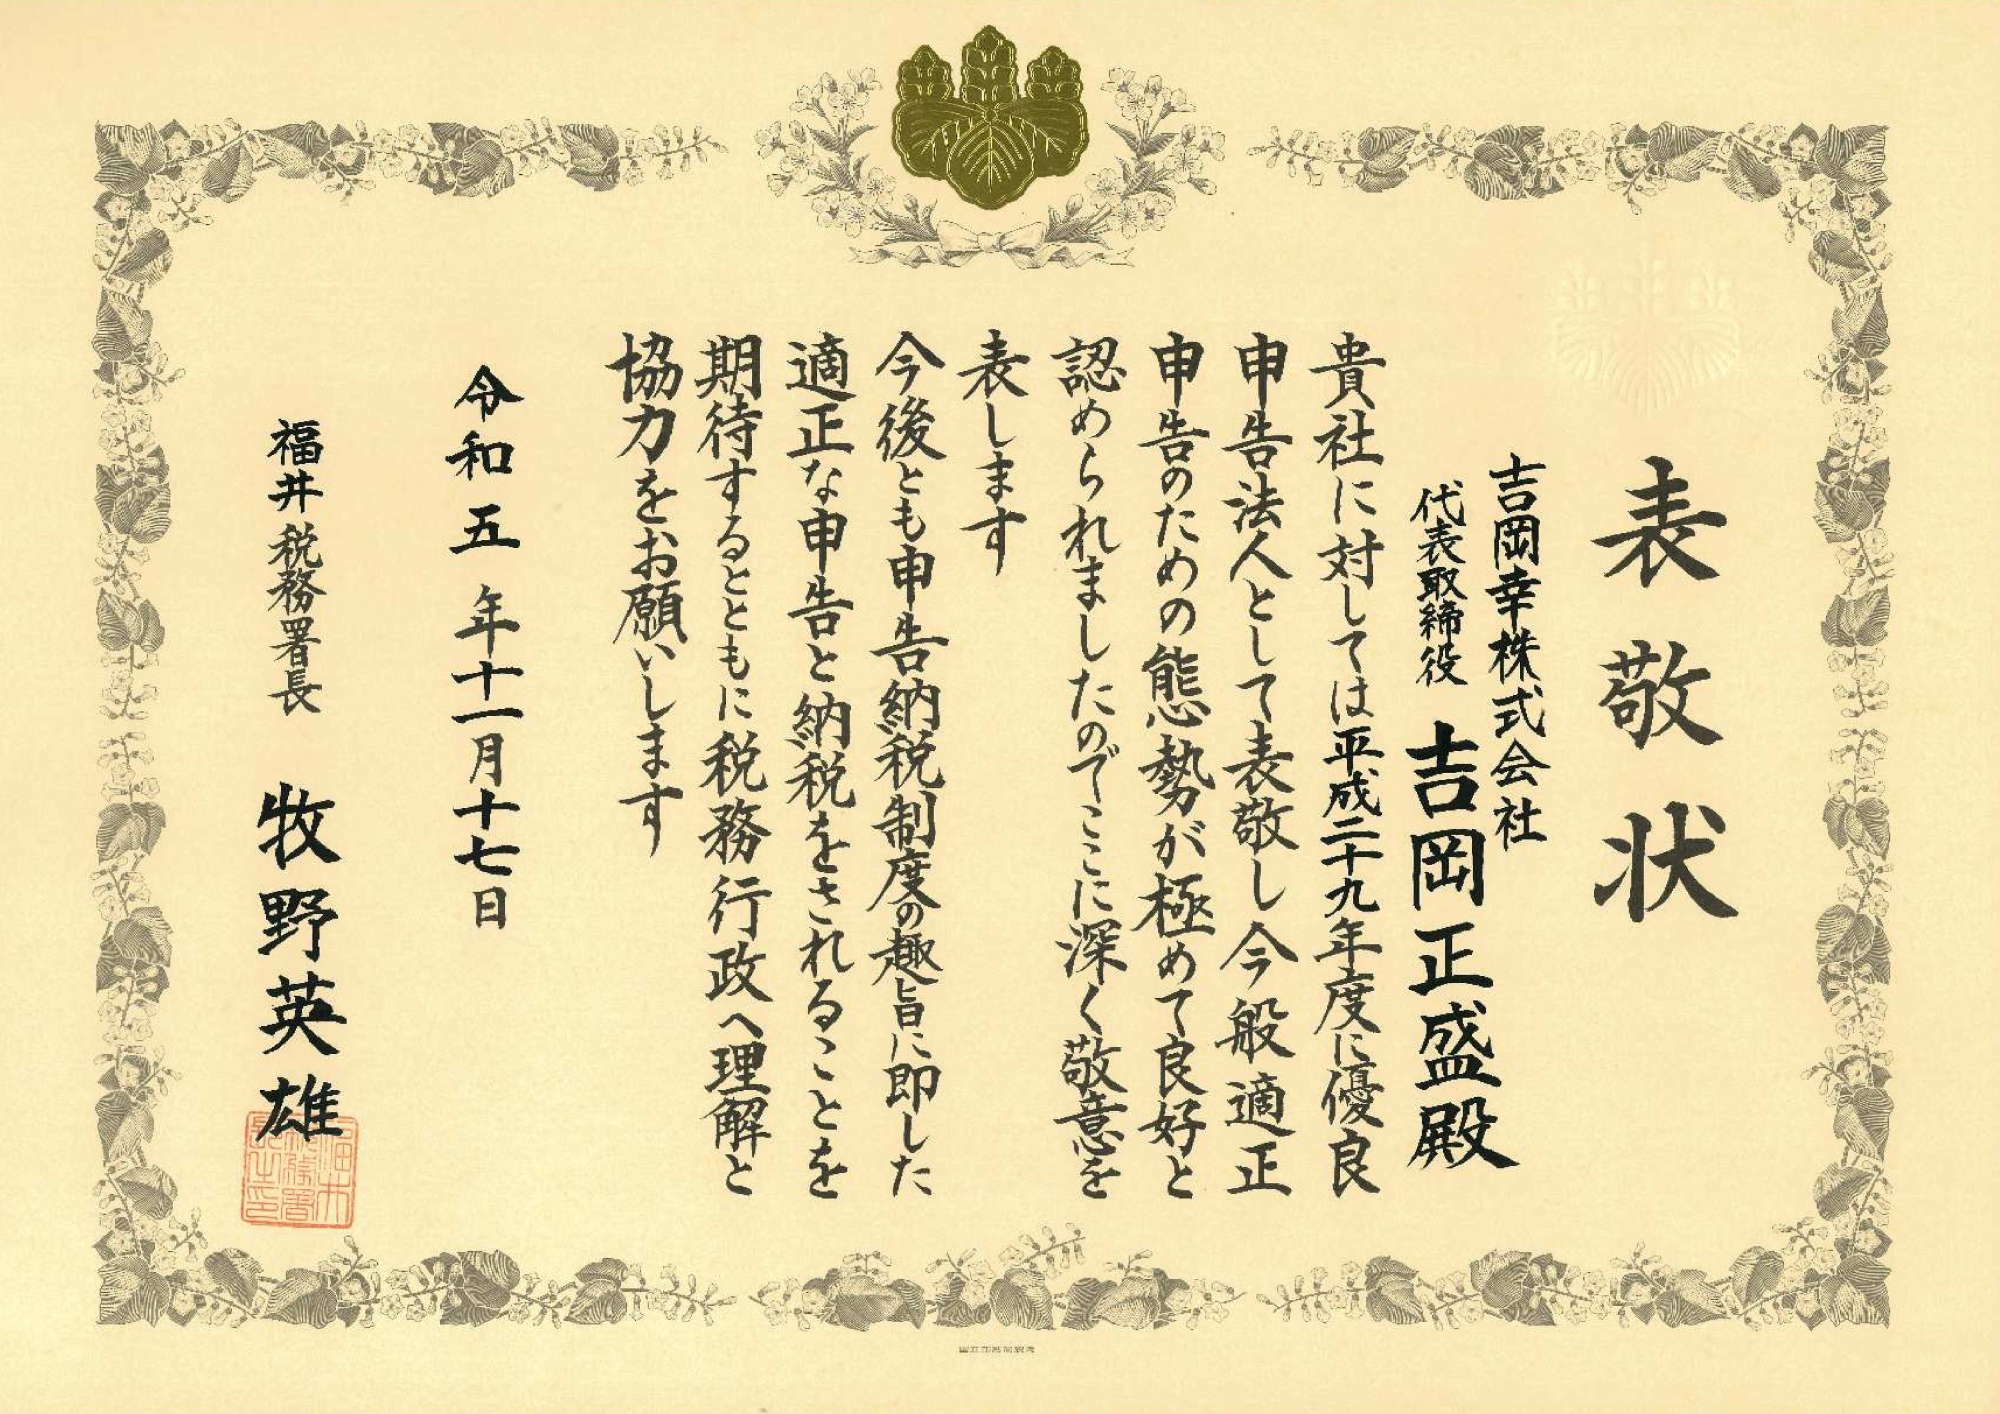 表敬状
吉岡幸株式会社
代表取締役 吉岡正盛殿
貴社に対しては平成二十九年度に優良
申告法人として表敬し今般適正
申告のための態勢が極めて良好と
認められましたのでここに深く敬意を
表します
今後とも申告納税制度の趣旨に即した
適正な申告と納税をされることを
期待するとともに税務行政へ理解と
協力をお願いします
令和五年十一月十七日
福井税務署長 牧野英雄